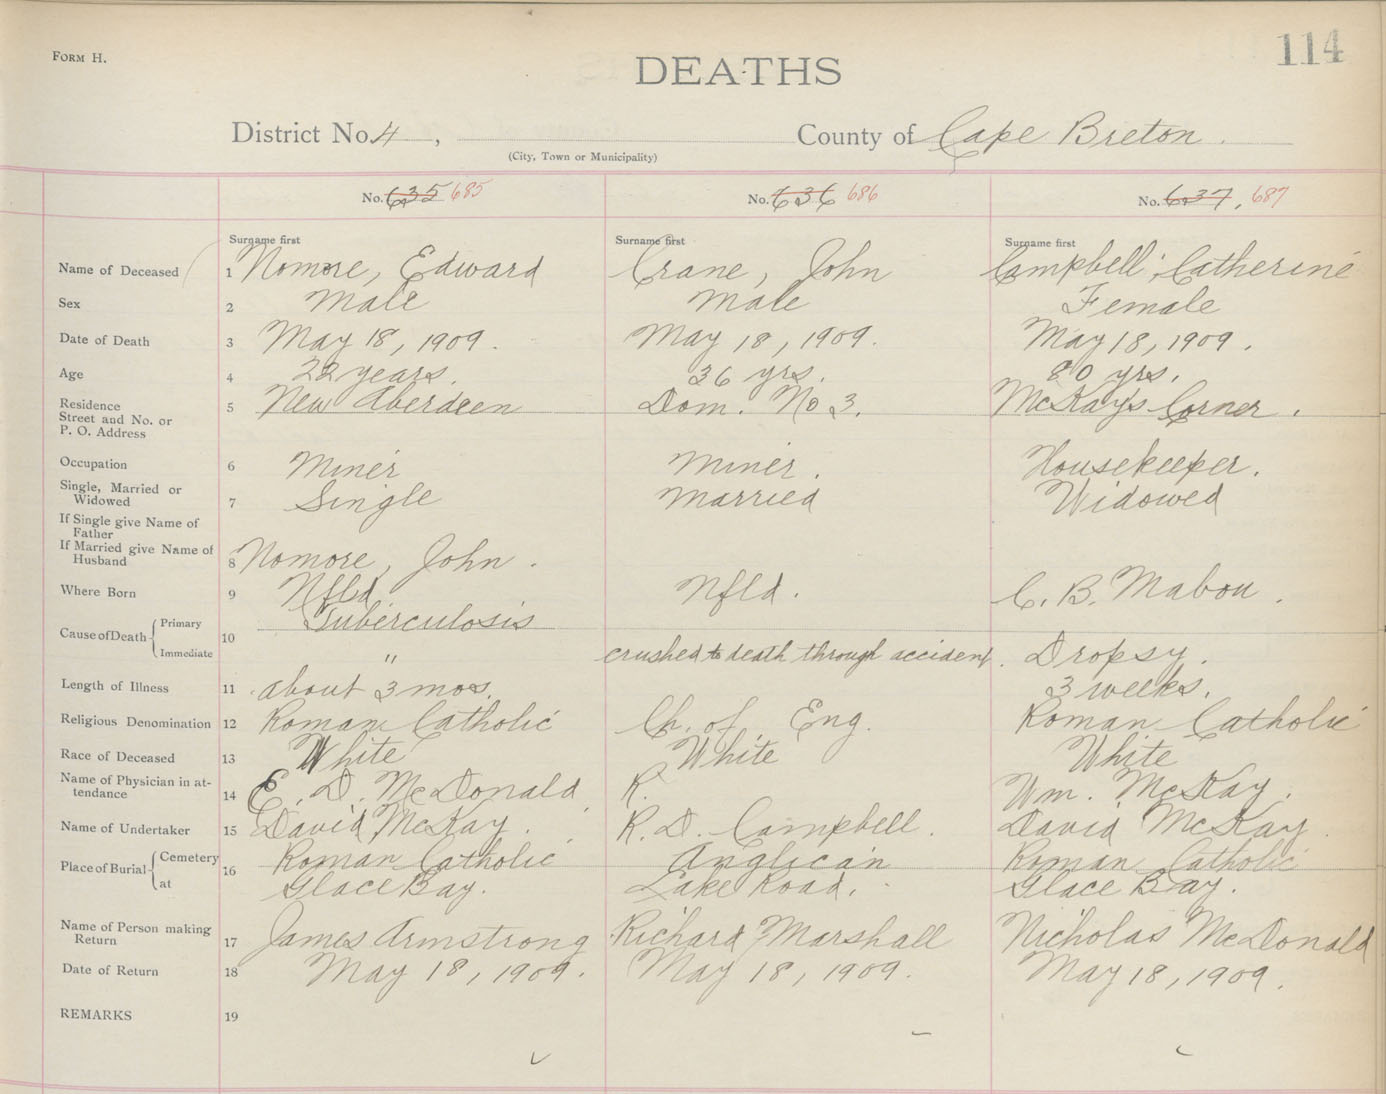 FORM H.
114
DEATHS
District No. 4, County of Cape Breton.
(City, Town or Municipality)
No. 635 685 No. 636 686 No. 637, 687
Surname first Surname first Surname first
Name of Deceased 1 Nomore, Edward Crane, John Campbell, Catherine
Sex 2 Male Male Female
Date of Death 3 May 18, 1909. May 18, 1909. May 18, 1909.
Age 4 22 years. 36 yrs. 80 yrs.
Residence
Street and No. or
P. O. Address 5 New Aberdeen Dom. No 3. McKays Corner.
Occupation 6 Miner Miner. Housekeeper.
Single, Married or
Widowed 7 Single Married Widowed
If Single give Name of
Father
If Married give Name of
Husband 8 Nomore, John.
Where Born 9 Nfld Nfld. C. B. Mabou.
Cause of Death Primary 10 Tuberculosis
Immediate " crushed to death through accident. Dropsy.
Length of Illness 11 about 3 mos. 3 weeks.
Religious Denomination 12 Roman Catholic Ch. of Eng. Roman Catholic
Race of Deceased 13 White White White
Name of Physician in at-
tendance 14 E. D. McDonald R. Wm. McKay.
Name of Undertaker 15 David McKay. R. D. Campbell. David McKay
Place of Burial Cemetery 16 Roman Catholic Anglican Roman Catholic
at Glace Bay. Lake Road. Glace Bay.
Name of Person making
Return 17 James Armstrong Richard Marshall Nicholas McDonald
Date of Return 18 May 18, 1909. May 18, 1909. May 18, 1909.
REMARKS 19